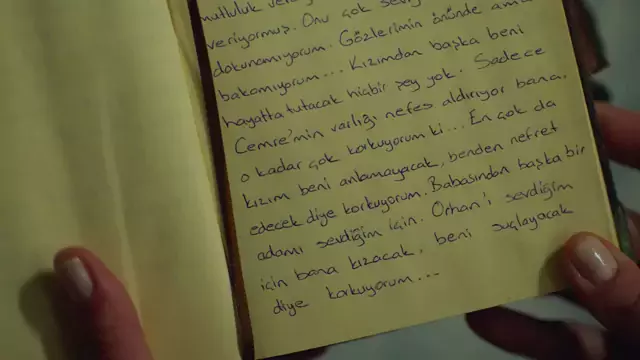 mutluluk
veriyormuş. Onu çok
dokunamıyorum. Gözlerimin önünde ama
bakamıyorum... Kızımdan başka beni
hayatta tutacak hiçbir şey yok. Sadece
Cemre'min varlığı nefes aldırıyor bana.
o kadar çok korkuyorum ki... En çok da
kızım beni anlamayacak, benden nefret
edecek diye korkuyorum. Babasından başka bir
adamı sevdiğim için. Orhan'ı sevdiğim
için bana kızacak, beni suçlayacak
diye korkuyorum...